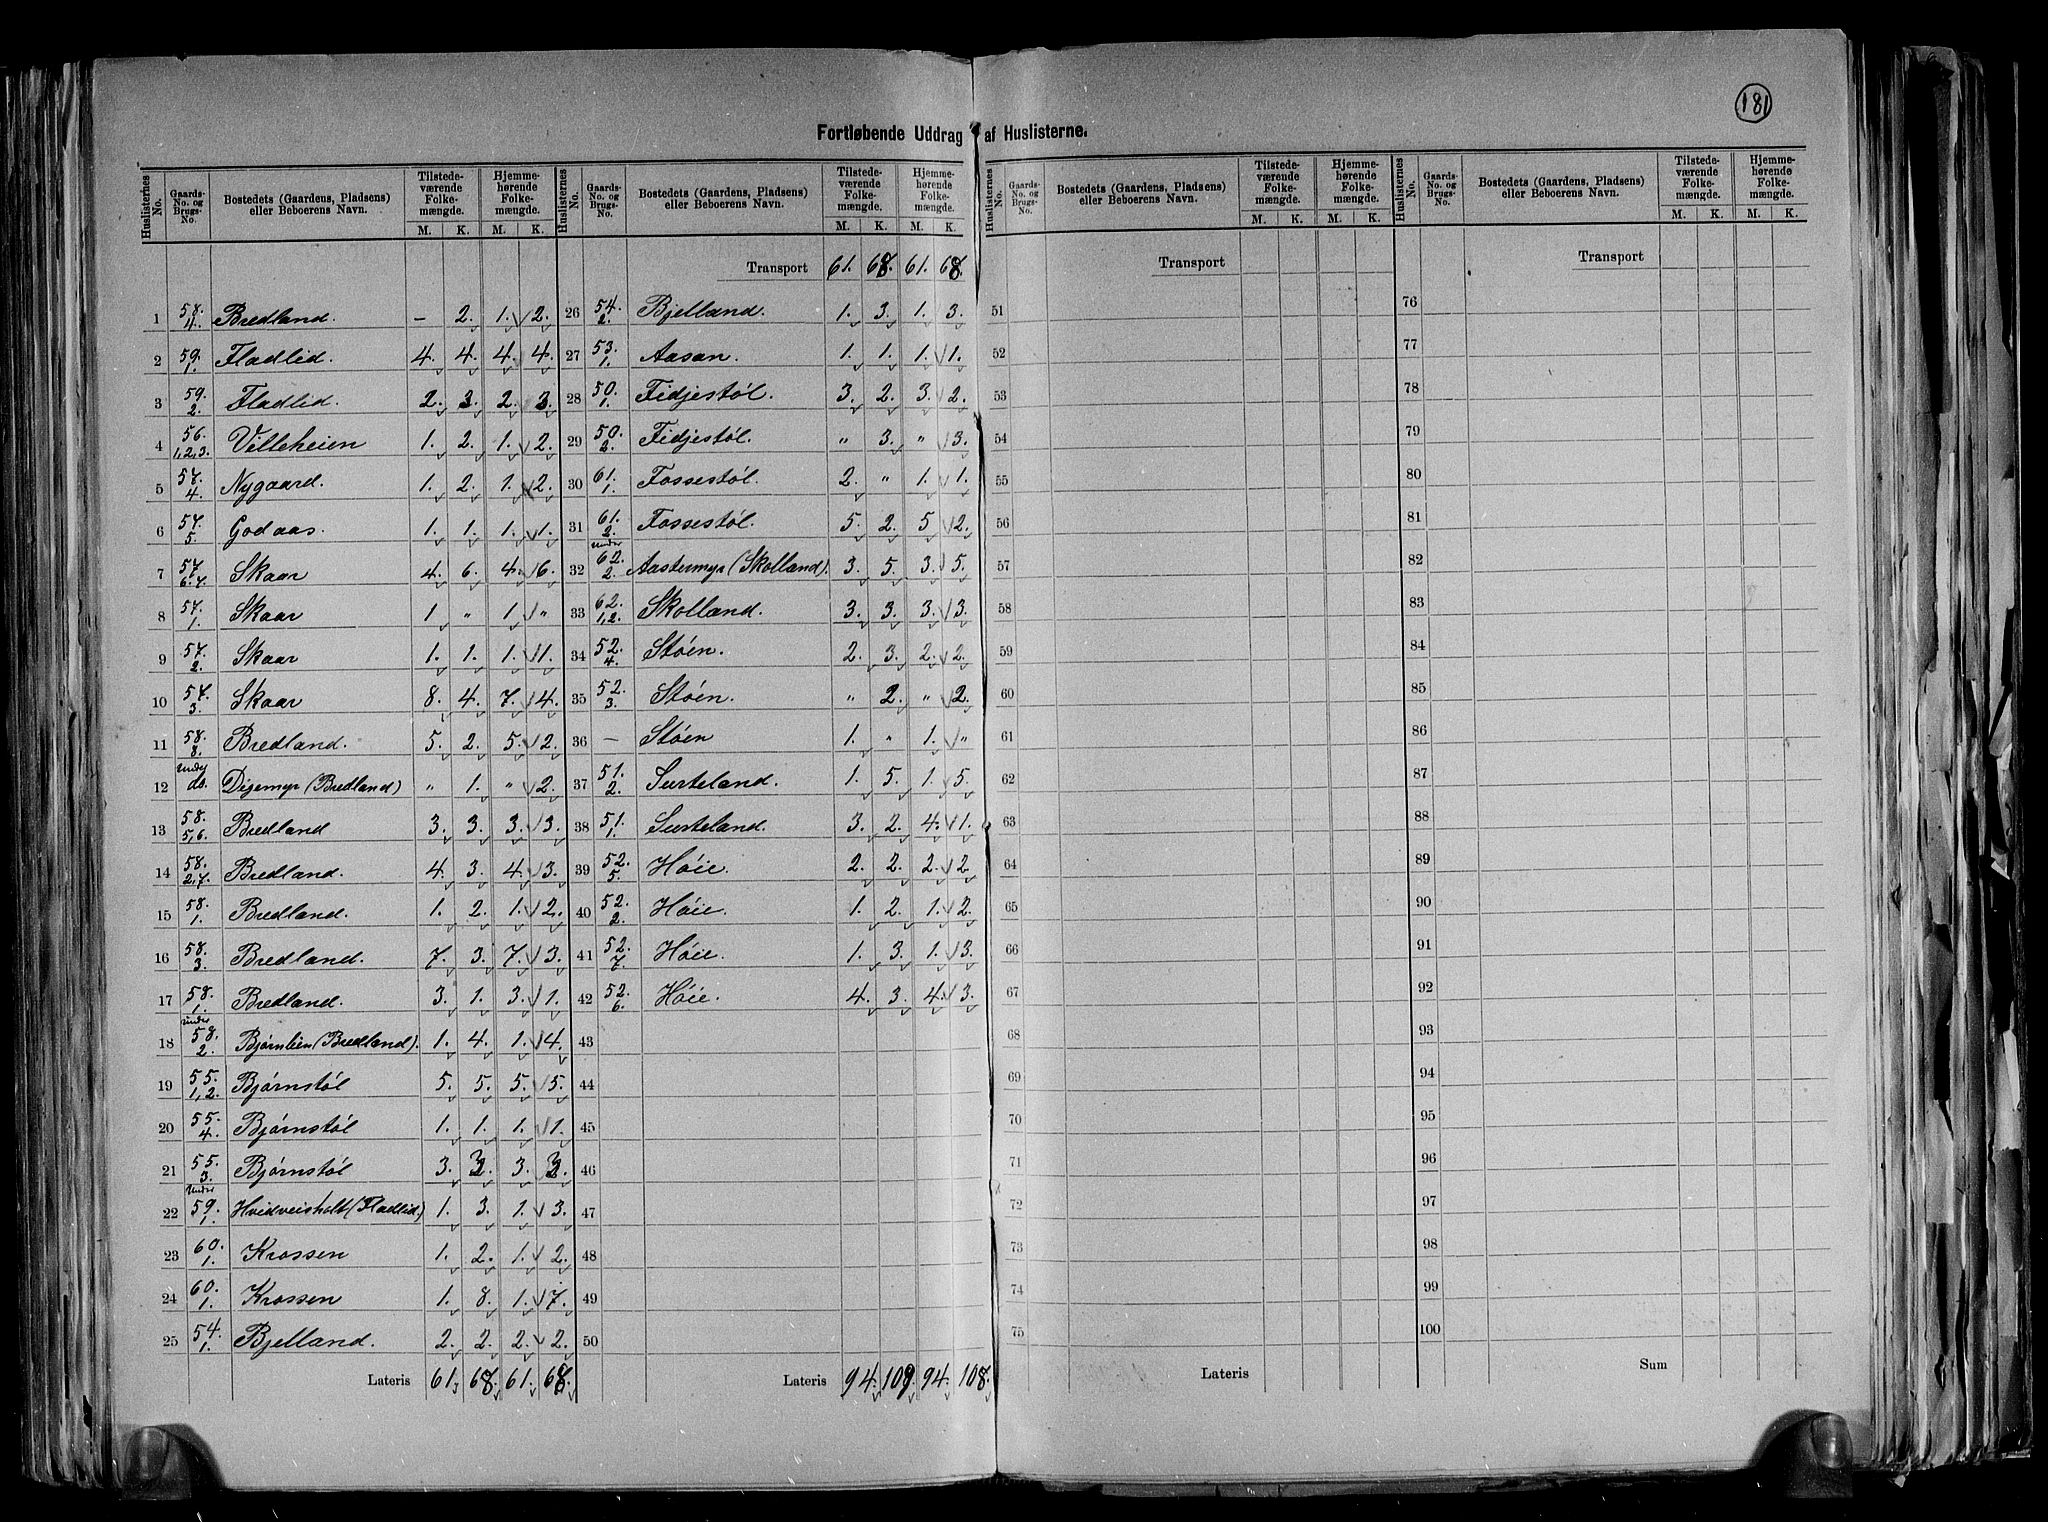 181
Fortløbende Uddrag af Huslisterne.
Huslisternes No. | Gaards-No. og Brugs-No. | Bostedets (Gaardens, Pladsens) eller Beboerens Navn. | Tilstedeværende Folkemængde. M. K. | Hjemmehørende Folkemængde. M. K.
1 58. 4. Bredland. – 2. 1. 2.
2 59. 1. Fladlid. 4. 4. 4. 4.
3 59. 2. Fladlid. 2. 3. 2. 3.
4 56. 1,2,3. Villeheien 1. 2. 1. 2.
5 57. 4. Nygaard. 1. 2. 1. 2.
6 57. 5. Godaas. 1. 1. 1. 1.
7 57. 6.7. Skaar 4. 6. 4. 6.
8 57. 1. Skaar 1. " 1. "
9 57. 2. Skaar 1. 1. 1. 1.
10 57. 3. Skaar 8. 4. 7. 4.
11 58. 8. Bredland. 5. 2. 5. 2.
12 under do. Digemyr (Bredland) " 1. " 2.
13 58. 5,6. Bredland 3. 3. 3. 3.
14 58. 2,7. Bredland. 4. 3. 4. 3.
15 58. 1. Bredland. 1. 2. 1. 2.
16 58. 3. Bredland. 7. 3. 7. 3.
17 58. 1. Bredland. 3. 1. 3. 1.
18 under 58. 2. Bjørnlien (Bredland). 1. 4. 1. 4.
19 55. 1,2. Bjørnstøl 5. 5. 5. 5.
20 55. 4. Bjørnstøl 1. 1. 1. 1.
21 55. 3. Bjørnstøl 3. 3. 3.
22 under 59. 1. Hvidveisholt (Fladlid.) 1. 3. 1. 3.
23 60. 1. Krossen 1. 2. 1. 2.
24 60. 1. Krossen 1. 8. 1. 7.
25 54. 1. Bjelland. 2. 2. 2. 2.
Lateris 61. 68. 61. 68.
Huslisternes No. | Gaards-No. og Brugs-No. | Bostedets (Gaardens, Pladsens) eller Beboerens Navn. | Tilstedeværende Folkemængde. M. K. | Hjemmehørende Folkemængde. M. K.
Transport 61. 68. 61. 68.
26 54. 2. Bjelland. 1. 3. 1. 3.
27 53. 1. Aasan. 1. 1. 1. 1.
28 50. 1. Fidjestøl. 3. 2. 3. 2.
29 50. 2. Fidjestøl. " 3. " 3.
30 61. 1. Fossestøl. 2. " 1. 1.
31 61. 2. Fossestøl. 5. 2. 5 2.
32 under 62. 2. Aastermyr (Skolland). 3. 5. 3. 5.
33 62. 1,2. Skolland. 3. 3. 3. 3.
34 52. 4. Støen. 2. 3. 2. 2.
35 52. 3. Støen. " 2. " 2.
36 – Støen 1. " 1. "
37 51. 2. Surteland. 1. 5. 1. 5.
38 51. 1. Surteland. 3. 2. 4. 1.
39 52. 5. Høie. 2. 2. 2. 2.
40 52. 2. Høie. 1. 2. 1. 2.
41 52. 7. Høie. 1. 3. 1. 3.
42 52. 6. Høie. 4. 3. 4. 3.
43
44
45
46
47
48
49
50
Lateris 94. 109. 94. 108.
Huslisternes No. | Gaards-No. og Brugs-No. | Bostedets (Gaardens, Pladsens) eller Beboerens Navn. | Tilstedeværende Folkemængde. M. K. | Hjemmehørende Folkemængde. M. K.
Transport
51
52
53
54
55
56
57
58
59
60
61
62
63
64
65
66
67
68
69
70
71
72
73
74
75
Lateris
Huslisternes No. | Gaards-No. og Brugs-No. | Bostedets (Gaardens, Pladsens) eller Beboerens Navn. | Tilstedeværende Folkemængde. M. K. | Hjemmehørende Folkemængde. M. K.
Transport
76
77
78
79
80
81
82
83
84
85
86
87
88
89
90
91
92
93
94
95
96
97
98
99
100
Sum